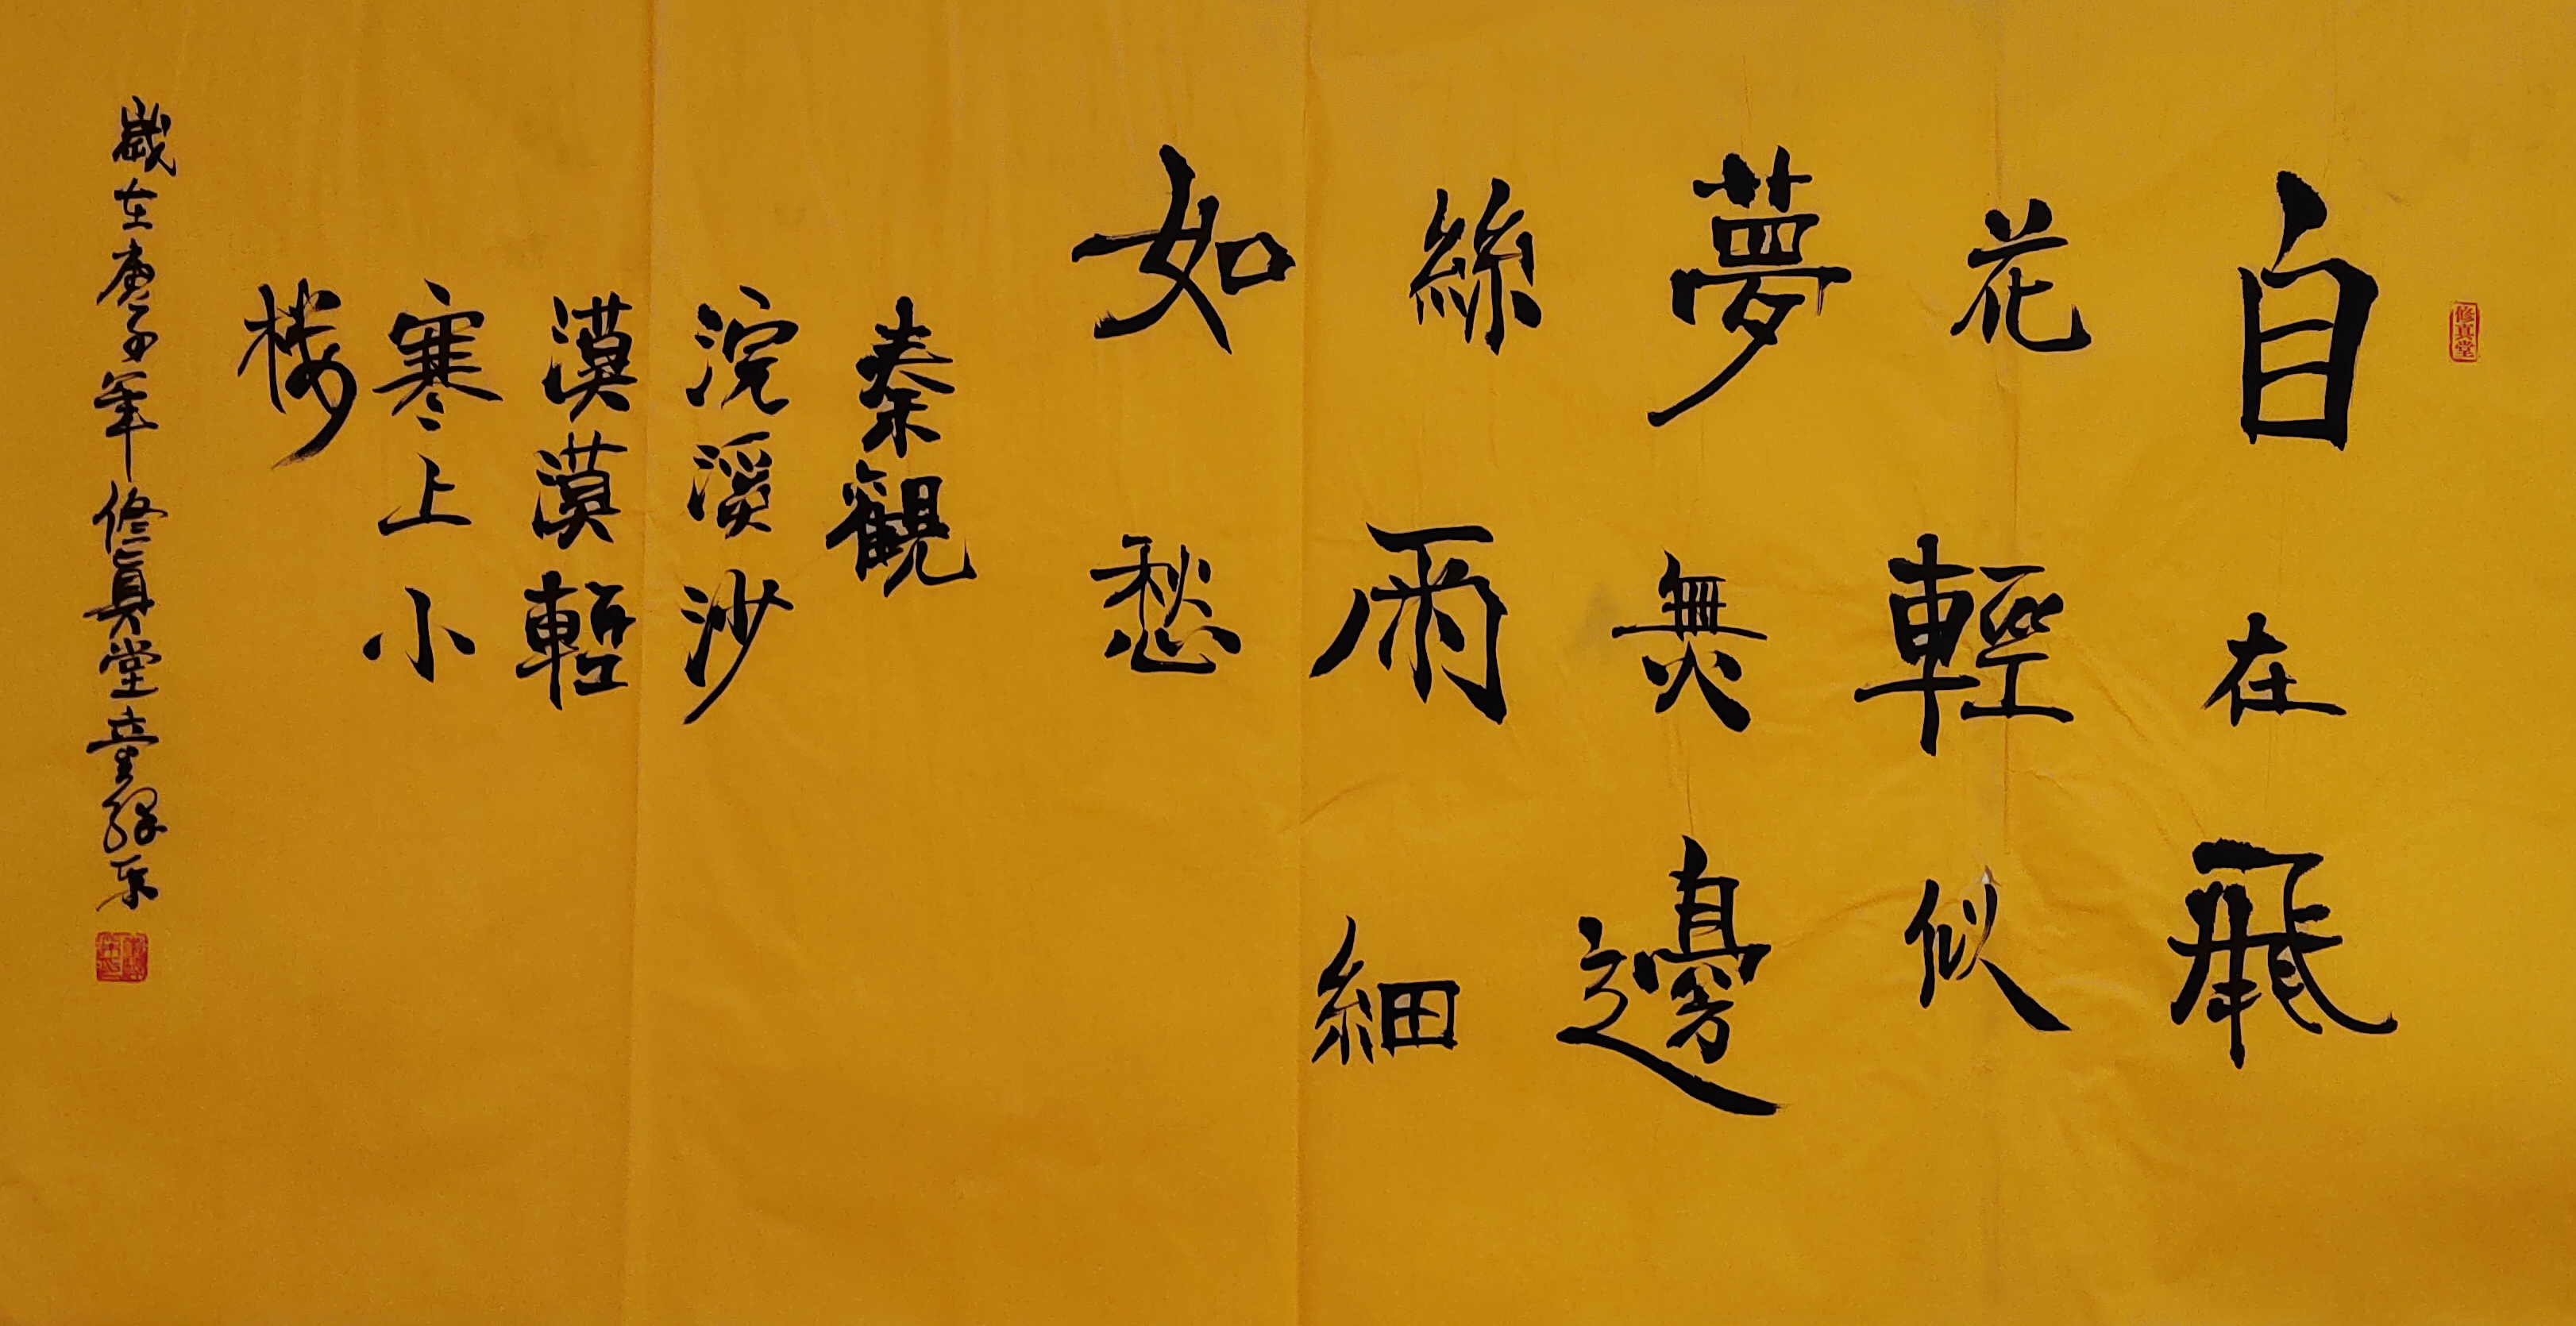 修真堂
自在飛
花輕似
夢無邊
絲雨細
如愁
秦觀
浣溪沙
漠漠輕
寒上小
楼
歲在庚子年修真堂童緣東